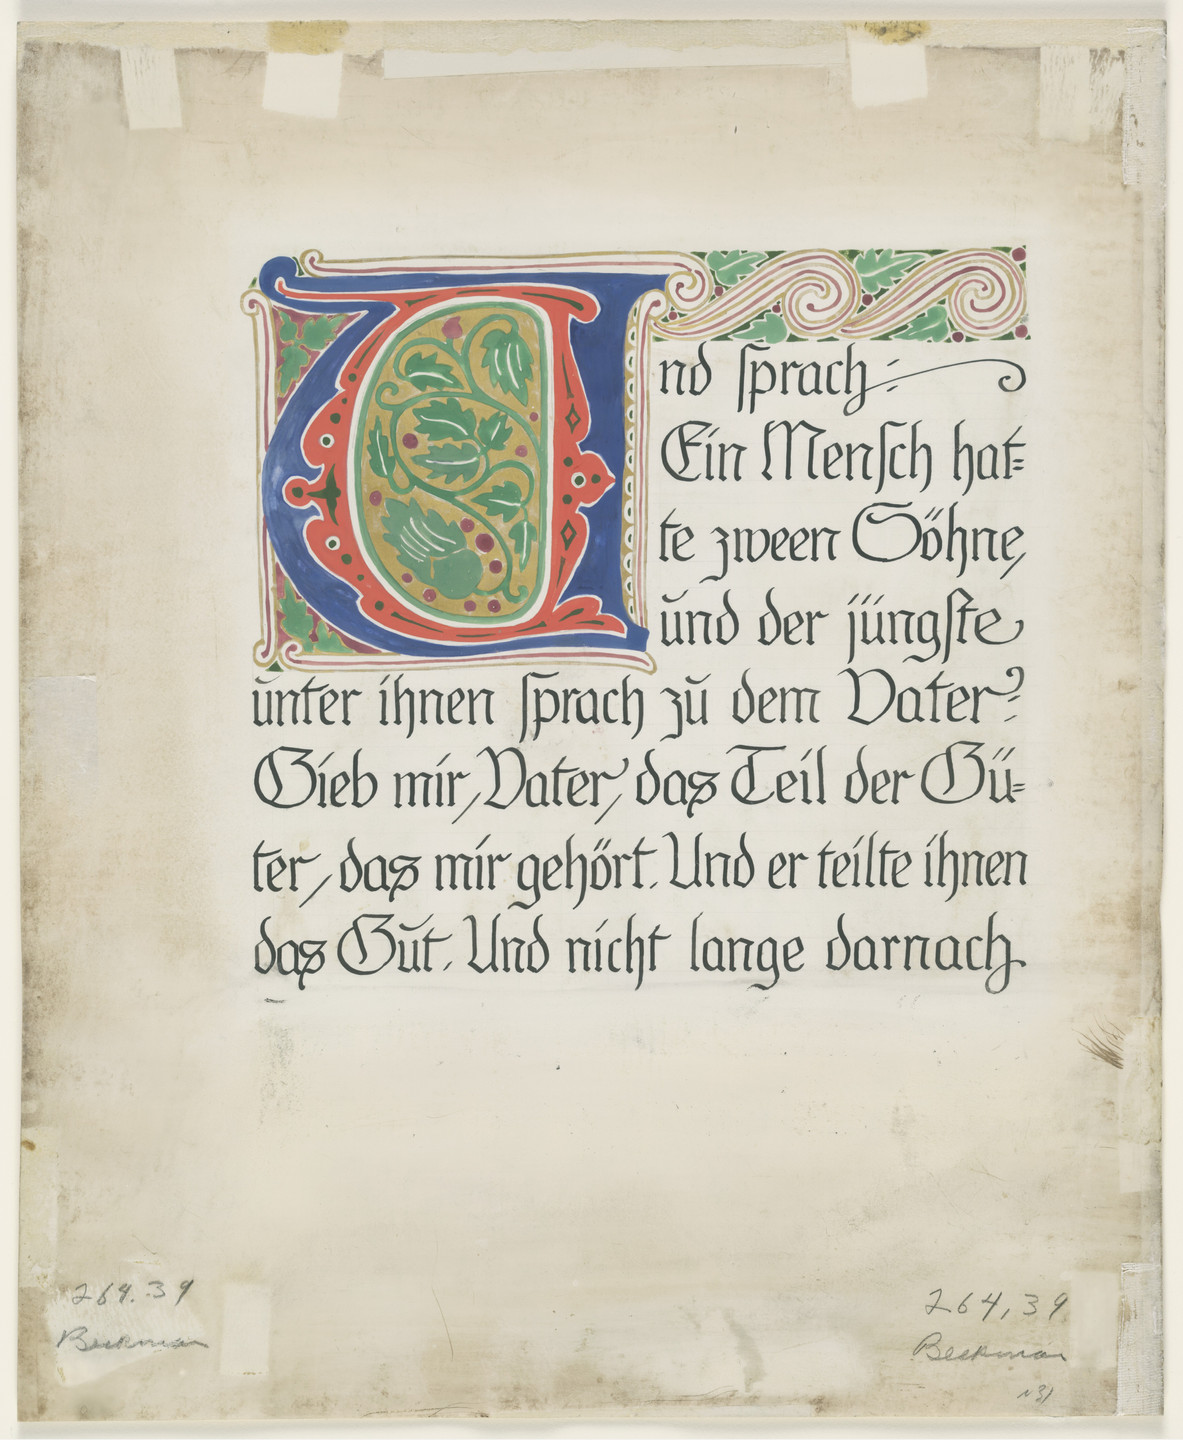 Und sprach:
Ein Mensch hat=
te zween Söhne,
und der jüngste
unter ihnen sprach zu dem Vater:
Gieb mir, Vater, das Teil der Gü=
ter, das mir gehört. Und er teilte ihnen
das Gut. Und nicht lange darnach
264.39
Beekman
264,39
Beekman